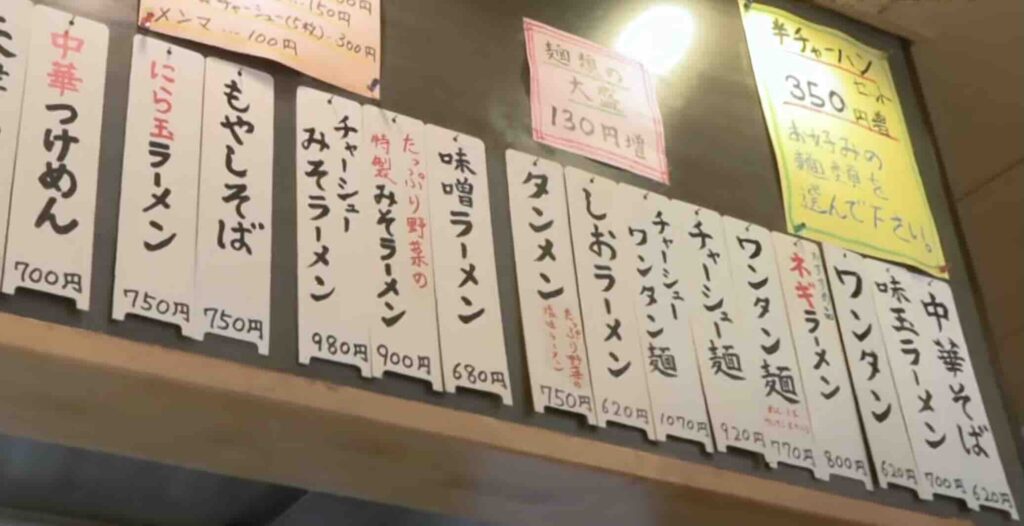 メンマ…100円
チャーシュー(5枚)-300円
150円
麺類の
大盛
130円増
半チャーハン
セット
350円増
お好みの
麺類を
選んで下さい。
中華そば
620円
味玉ラーメン
700円
ワンタン
620円
ネギラーメン
800円
ワンタン麺
770円
チャーシュー麺
920円
チャーシュー
ワンタン麺
1070円
しおラーメン
620円
タンメン
たっぷり野菜の
750円
味噌ラーメン
680円
たっぷり野菜の
特製みそラーメン
900円
チャーシュー
みそラーメン
980円
もやしそば
750円
にら玉ラーメン
750円
中華つけめん
700円